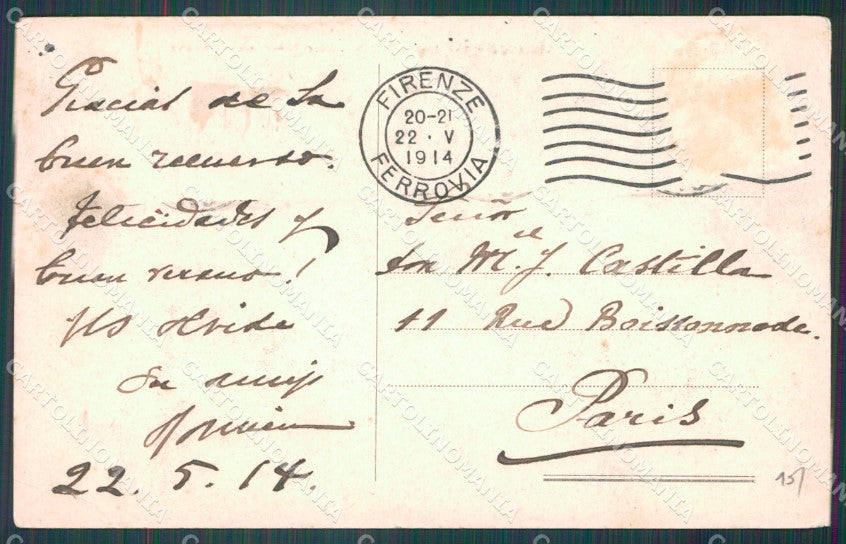 Gracias de su
buen recuerdo.
felicidades y
buen verano!
No olvide
su amigo
22.5.14.
FIRENZE
20-21
22 · V
1914
FERROVIA
Señor
don Ml. J. Castilla
11 Rue Boissonnade.
Paris
15/
CARTOLINOMANIA